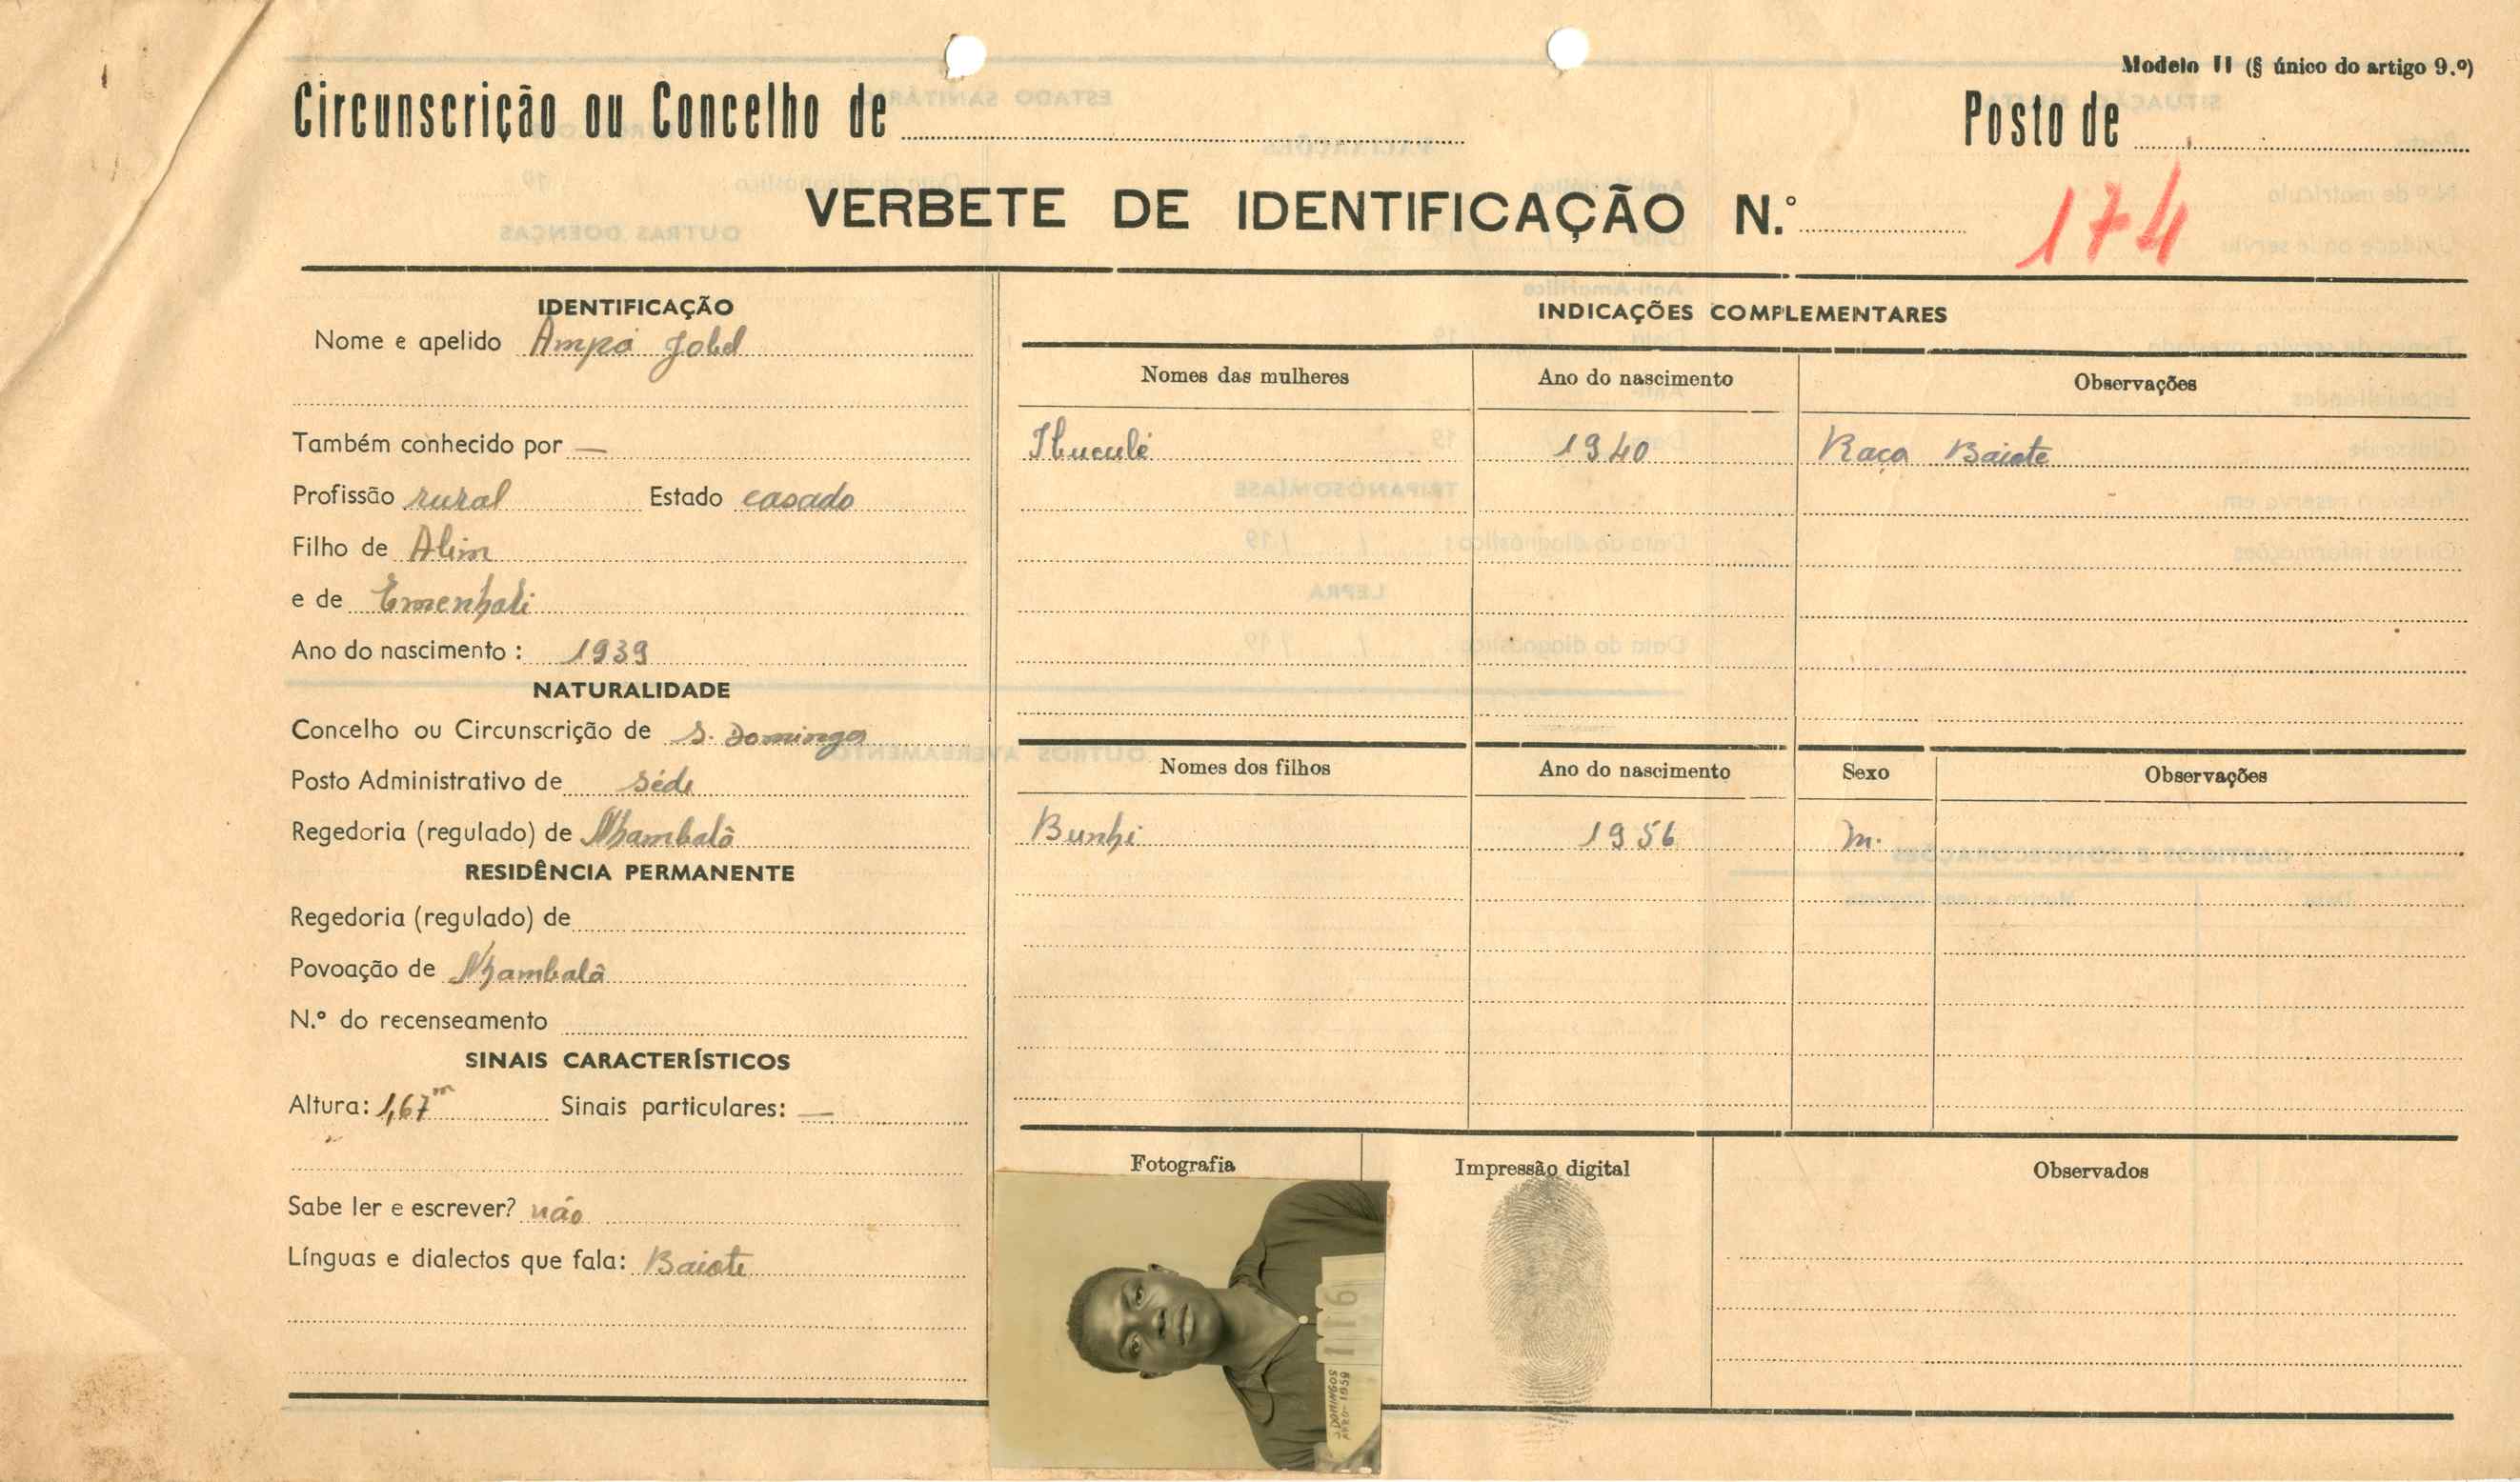 Modelo II (§ único do artigo 9.º)
Circunscrição ou Concelho de
Posto de
VERBETE DE IDENTIFICAÇÃO N.º 174
IDENTIFICAÇÃO
Nome e apelido Ampá Jobel
Também conhecido por —
Profissão rural Estado casado
Filho de Alim
e de Emenhali
Ano do nascimento: 1939
NATURALIDADE
Concelho ou Circunscrição de S. Domingos
Posto Administrativo de Séde
Regedoria (regulado) de Nhambalã
RESIDÊNCIA PERMANENTE
Regedoria (regulado) de
Povoação de Nhambalã
N.º do recenseamento
SINAIS CARACTERÍSTICOS
Altura: 1,67m Sinais particulares: —
Sabe ler e escrever? não
Línguas e dialectos que fala: Baiote
INDICAÇÕES COMPLEMENTARES
Nomes das mulheres Ano do nascimento Observações
1940 Raça Baiote
Nomes dos filhos Ano do nascimento Sexo Observações
Bunhi 1956 m.
Fotografia Impressão digital Observados